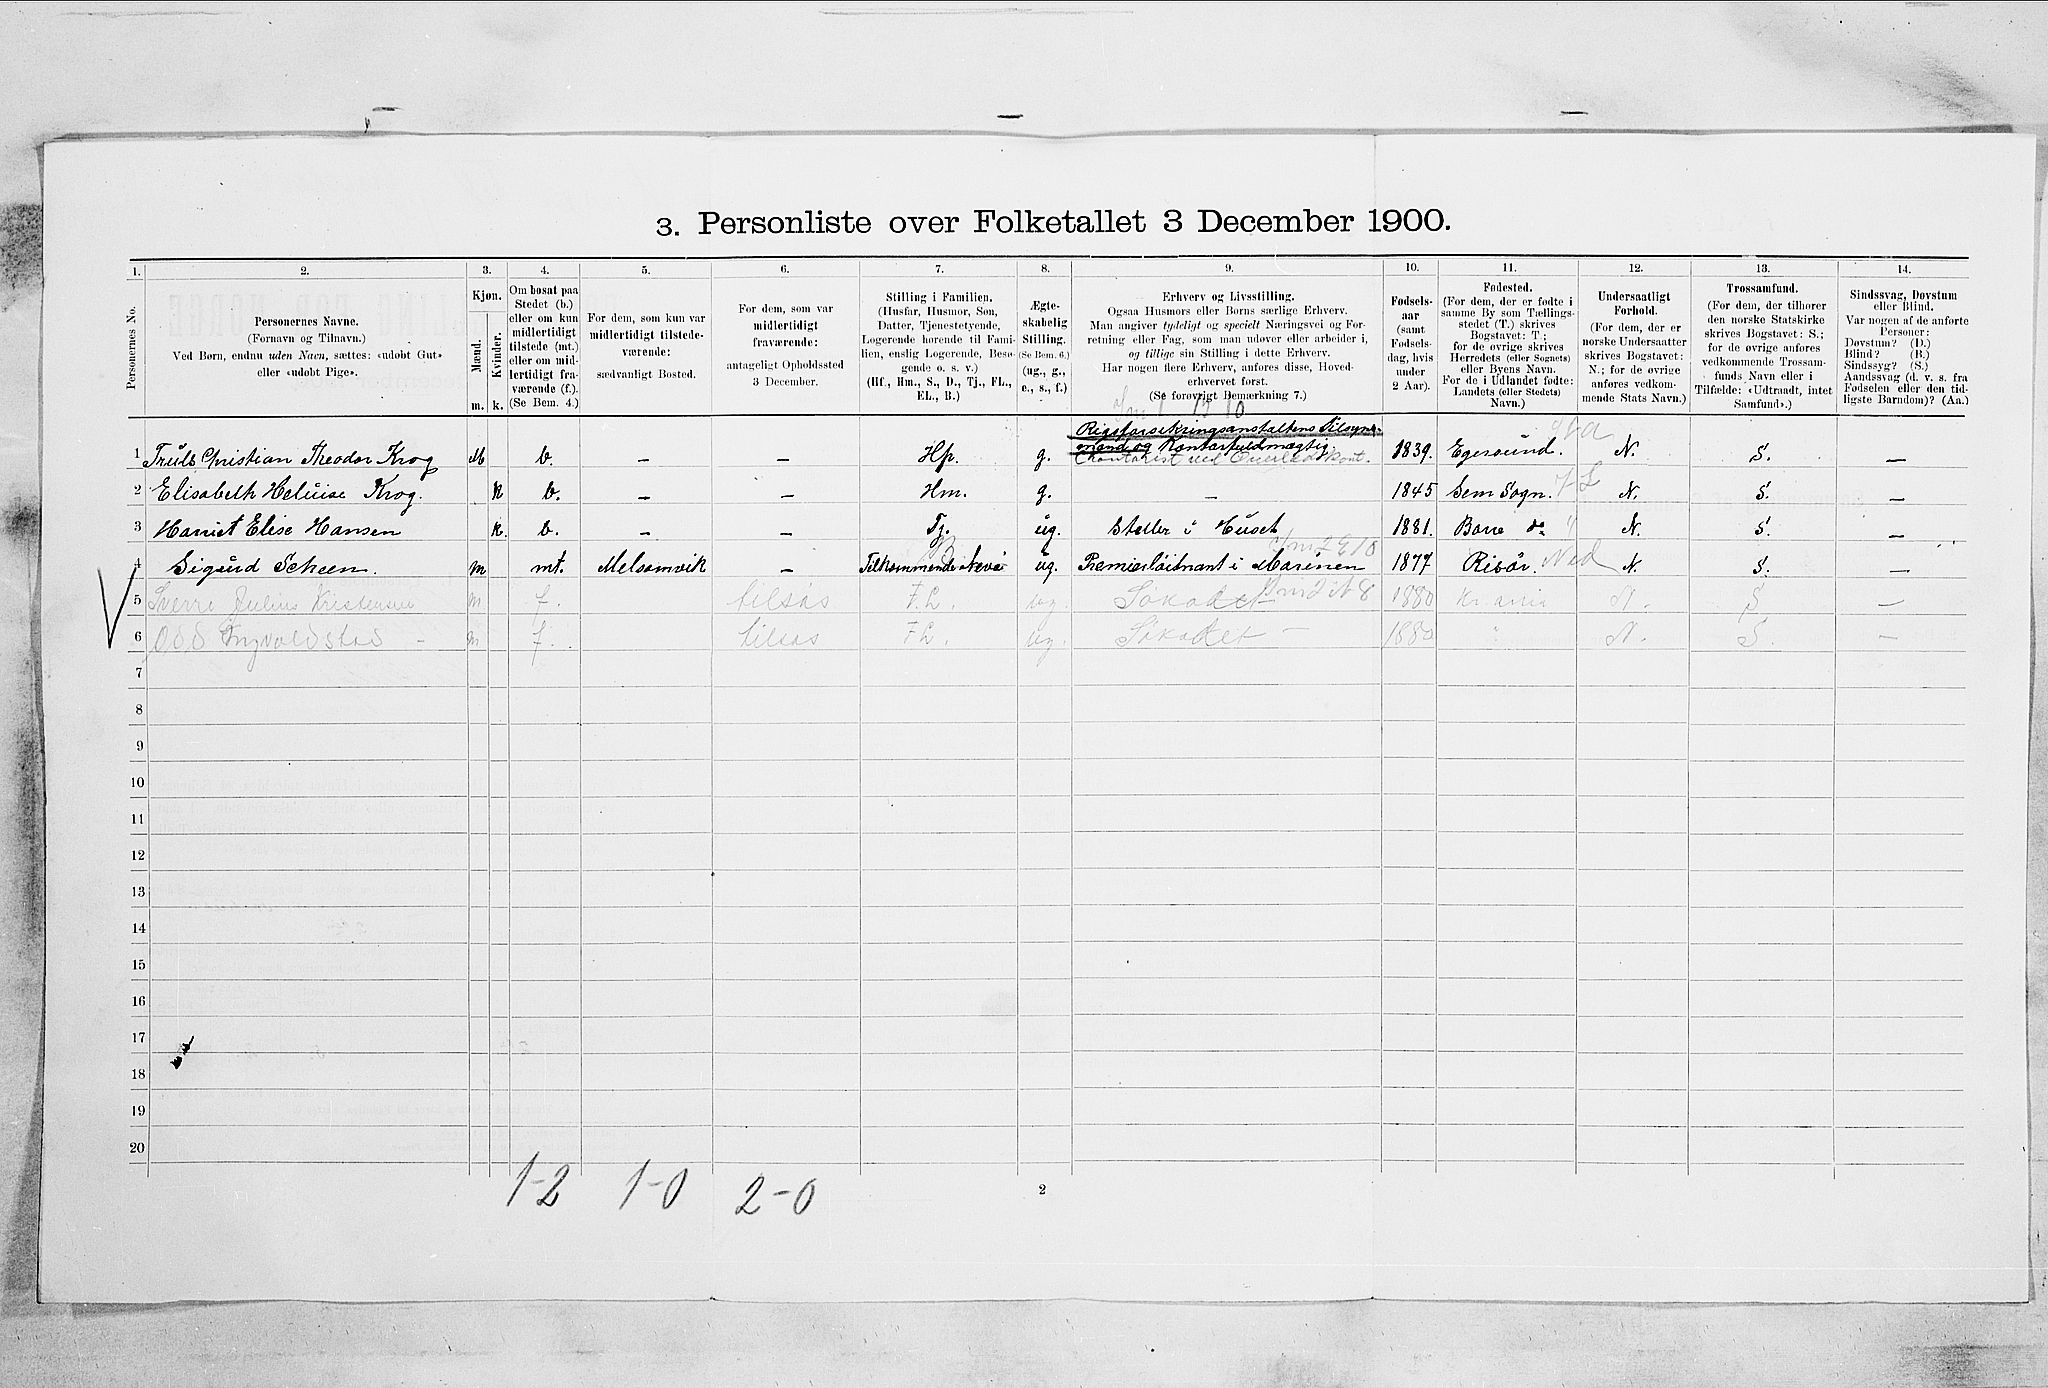 3. Personliste over Folketallet 3 December 1900.
1. 2. 3. 4. 5. 6. 7. 8. 9. 10. 11. 12. 13. 14.
Personernes No.
Personernes Navne.
(Fornavn og Tilnavn.)
Ved Børn, endnu uden Navn, sættes: «udøbt Gut»
eller «udøbt Pige».
Kjøn.
Mænd.
Kvinder.
m. k.
Om bosat paa
Stedet (b.)
eller om kun
midlertidigt
tilstede (mt.)
eller om mid-
lertidigt fra-
værende (f.).
(Se Bem. 4.)
For dem, som kun var
midlertidigt tilstede-
værende:
sædvanligt Bosted.
For dem, som var
midlertidigt
fraværende:
antageligt Opholdssted
3 December.
Stilling i Familien.
(Husfar, Husmor, Søn,
Datter, Tjenestetyende,
Logerende hørende til Fami-
lien, enslig Logerende, Besø-
gende o. s. v.)
(Hf., Hm., S., D., Tj., FL.,
EL., B.)
Ægte-
skabelig
Stilling.
(Se Bem. 6.)
(ug., g.,
e., s., f.)
Erhverv og Livsstilling.
Ogsaa Husmors eller Børns særlige Erhverv.
Man angiver tydeligt og specielt Næringsvei og For-
retning eller Fag, som man udøver eller arbeider i,
og tillige sin Stilling i dette Erhverv.
Har nogen flere Erhverv, anføres disse, Hoved-
erhvervet først.
(Se forøvrigt Bemærkning 7.)
Fødsels-
aar
(samt
Fødsels-
dag, hvis
under
2 Aar).
Fødested.
(For dem, der er fødte i
samme By som Tællings-
stedet (T.) skrives
Bogstavet: T.;
for de øvrige skrives
Herredets (eller Sognets)
eller Byens Navn.
For de i Udlandet fødte:
Landets (eller Stedets)
Navn.)
Undersaatligt
Forhold.
(For dem, der er
norske Undersaatter
skrives Bogstavet:
N.; for de øvrige
anføres vedkom-
mende Stats Navn.)
Trossamfund.
(For dem, der tilhører
den norske Statskirke
skrives Bogstavet: S.;
for de øvrige anføres
vedkommende Trossam-
funds Navn eller i
Tilfælde: «Udtraadt, intet
Samfund».)
Sindssvag, Døvstum
eller Blind.
Var nogen af de anførte
Personer:
Døvstum? (D.)
Blind? (B.)
Sindssyg? (S.)
Aandssvag (d. v. s. fra
Fødselen eller den tid-
ligste Barndom)? (Aa.)
Rigsforsikringsanstaltens Tilsyns-
mand og Kontorfuldmægtig
1 Truls Christian Theodor Krog M b. – – Hf. g. 1839. Egersund. N. S. –
2 Elisabeth Heluise Krog. k b. – – Hm. g. – 1845 Sem Sogn. N. S. –
3 Harriet Elise Hansen k. b. – – Tj. ug. Steller i Huset 1881. Borre do N. S. –
4 Sigurd Scheen. m mt. Melsomvik – B ug. Premierløitnant i Marinen 1877 Risör. N. S. –
5 Sverre Julius Kristensen m f. tilsøs F.L. ug. Søkadet 1880 Kr.ania N. S –
6 Odd Yngvoldstad – m f. tilsøs FL. ug. Søkadet – 1880 " N. S. –
7
8
9
10
11
12
13
14
15
16
17
18
19
20
1-2 1-0 2-0
2